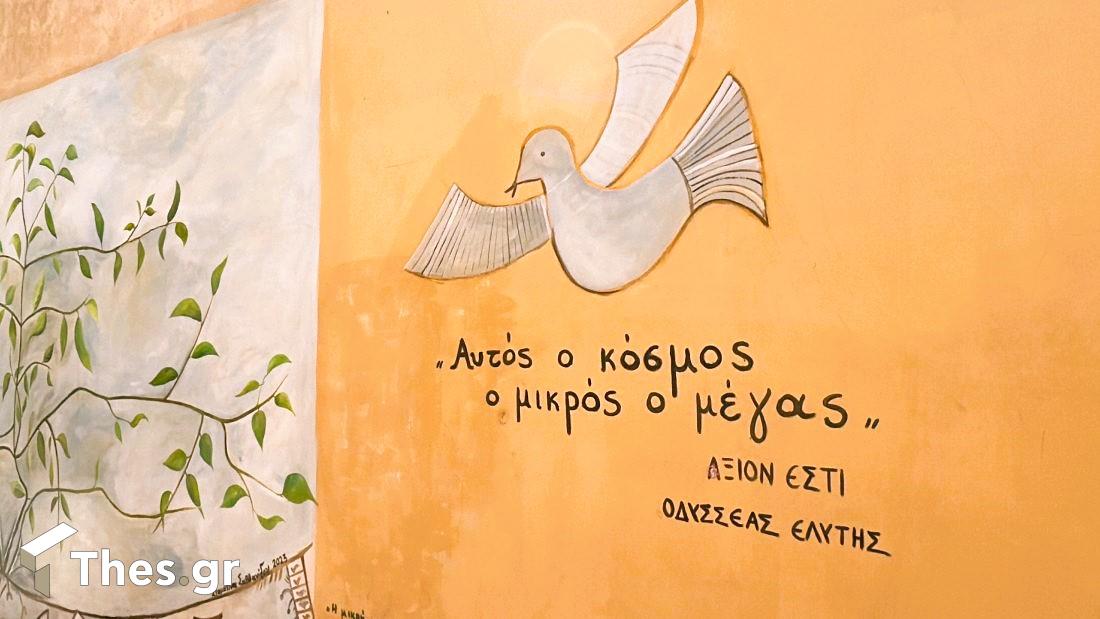 „Αυτός ο κόσμος
ο μικρός ο μέγας„
ΑΞΙΟΝ ΕΣΤΙ
ΟΔΥΣΣΕΑΣ ΕΛΥΤΗΣ
2023
Thes.gr
„Η μικρό